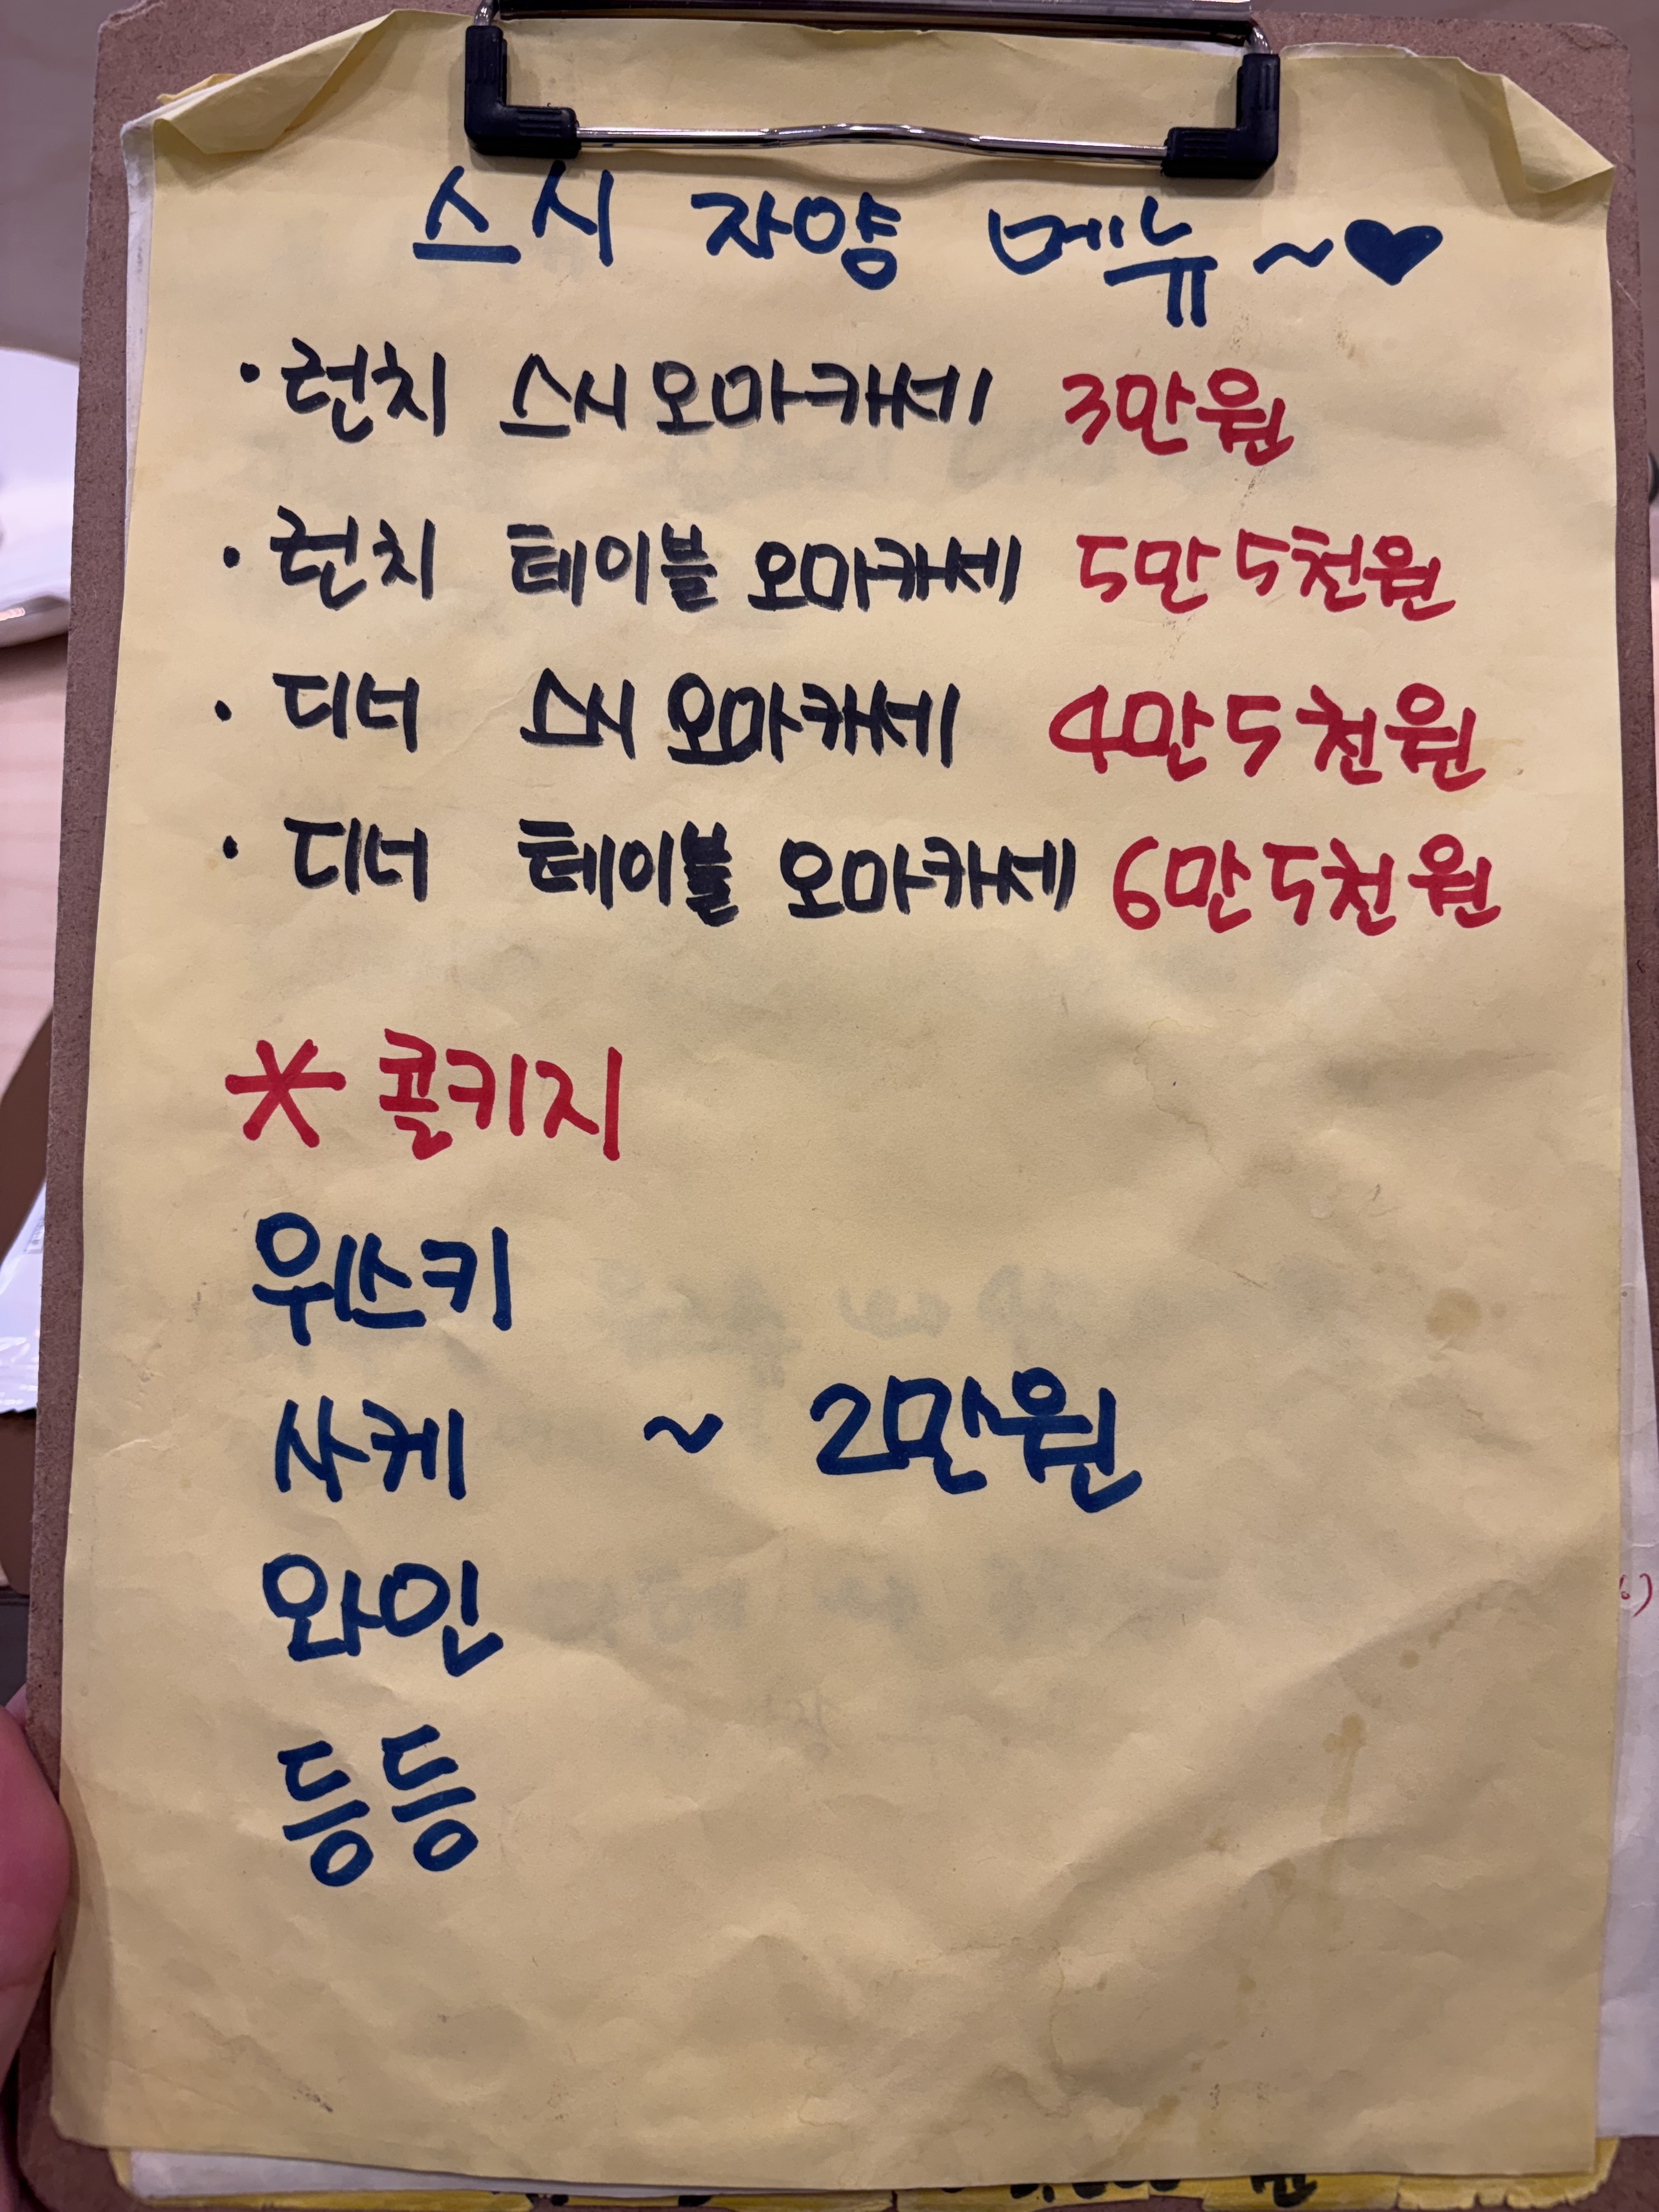 스시 자양 메뉴~♥
· 런치 스시 오마카세 3만원
· 런치 테이블 오마카세 5만 5천원
· 디너 스시 오마카세 4만 5천원
· 디너 테이블 오마카세 6만 5천원
* 콜키지
위스키
사케 ~ 2만원
와인
등등